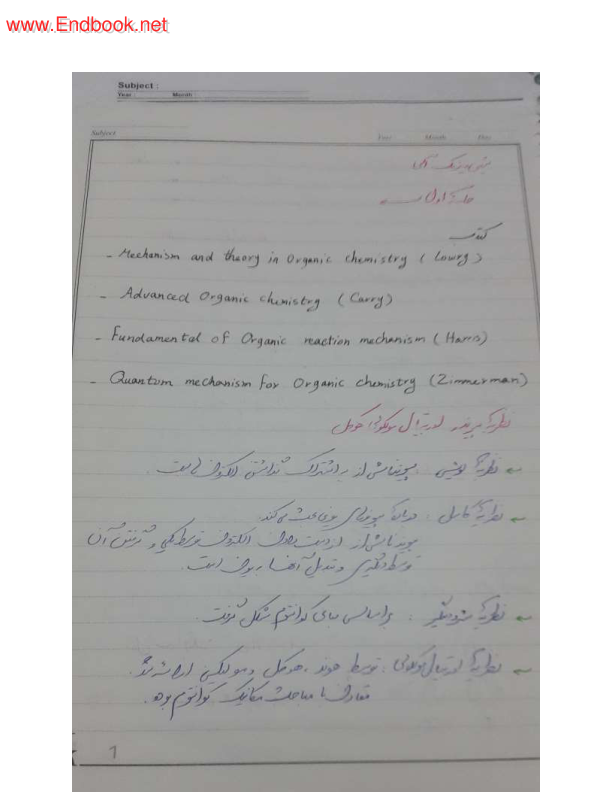 www.Endbook.net
Subject :
Year : Month :
Subject Year Month Day
شیمی فیزیک آلی
جلسه اول
کتاب
- Mechanism and theory in Organic chemistry ( Lowry )
- Advanced Organic chemistry ( Carry )
- Fundamental of Organic reaction mechanism ( Harris )
- Quantum mechanism for Organic chemistry (Zimmerman)
نظریه پیوند اوربیتال مولکولی هوکل
نظریه لویس : پیوند ناشی از به اشتراک گذاشتن الکترون است .
نظریه کاسل : درباره پیوندهای یونی صحبت می‌کند
پیوند ناشی از از دست دادن الکترون توسط یکی و گرفتن آن
توسط دیگری و تبدیل آنها به یون است .
نظریه شرودینگر : بر اساس مبانی کوانتوم شکل گرفت
نظریه اوربیتال مولکولی : توسط هوند ، هوکل و مولیکن ارائه شد
مقارن با مباحث مکانیک کوانتوم بود .
1